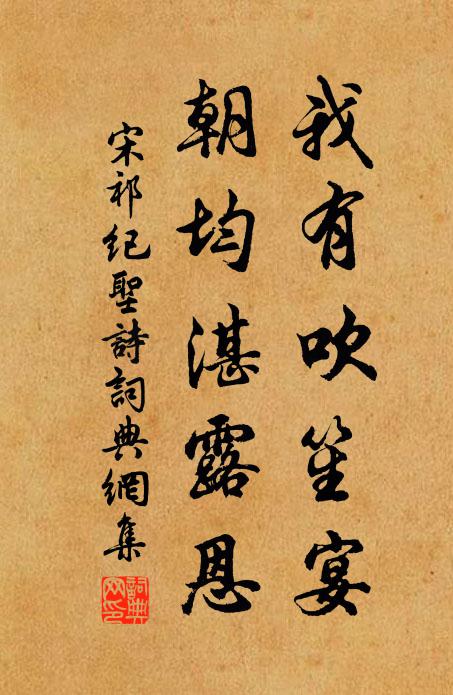 我有吹笙宴
朝均湛露恩
宋祁紀聖詩詞典網集